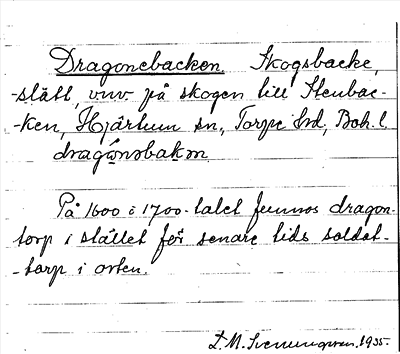 Dragonebacken. Skogsbacke,
-slätt, vuv på skogen till Stenbac-
-ken, Hjärtum sn, Torpe hd, Boh. l.
dragónsbakɔn
På 1600 o 1700-talet funnos dragon-
torp i stället för senare tids soldat-
-torp i orten.
D. M. 1935.